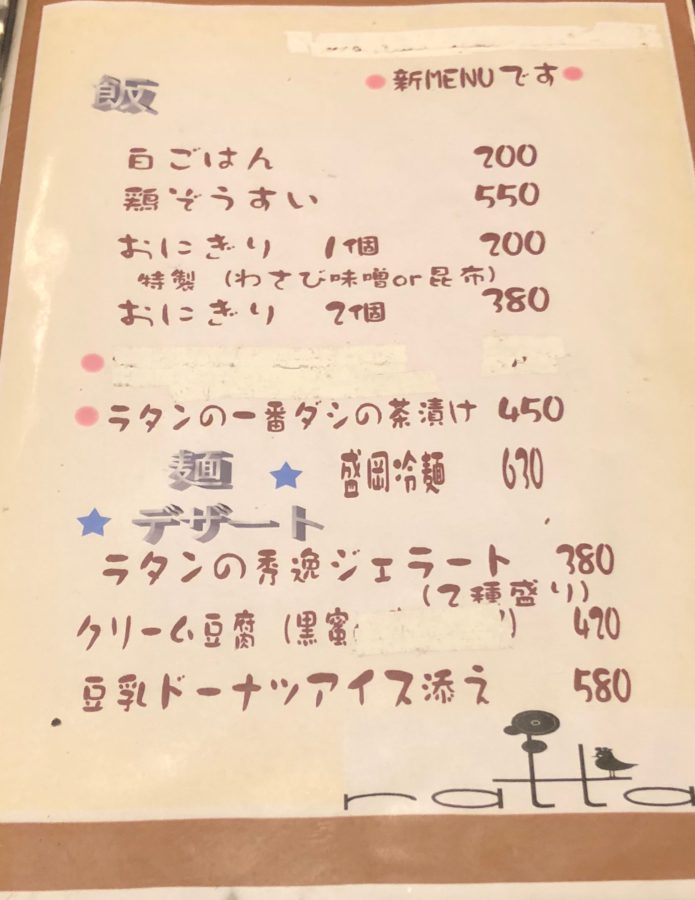 ●新MENUです●
飯
白ごはん 200
鶏ぞうすい 550
おにぎり 1個 200
特製 (わさび味噌or昆布)
おにぎり 2個 380
●ラタンの一番ダシの茶漬け 450
麺 ★ 盛岡冷麺 630
★ デザート
ラタンの秀逸ジェラート 380
(2種盛り)
クリーム豆腐 (黒蜜 ) 420
豆乳ドーナツアイス添え 580
ratta